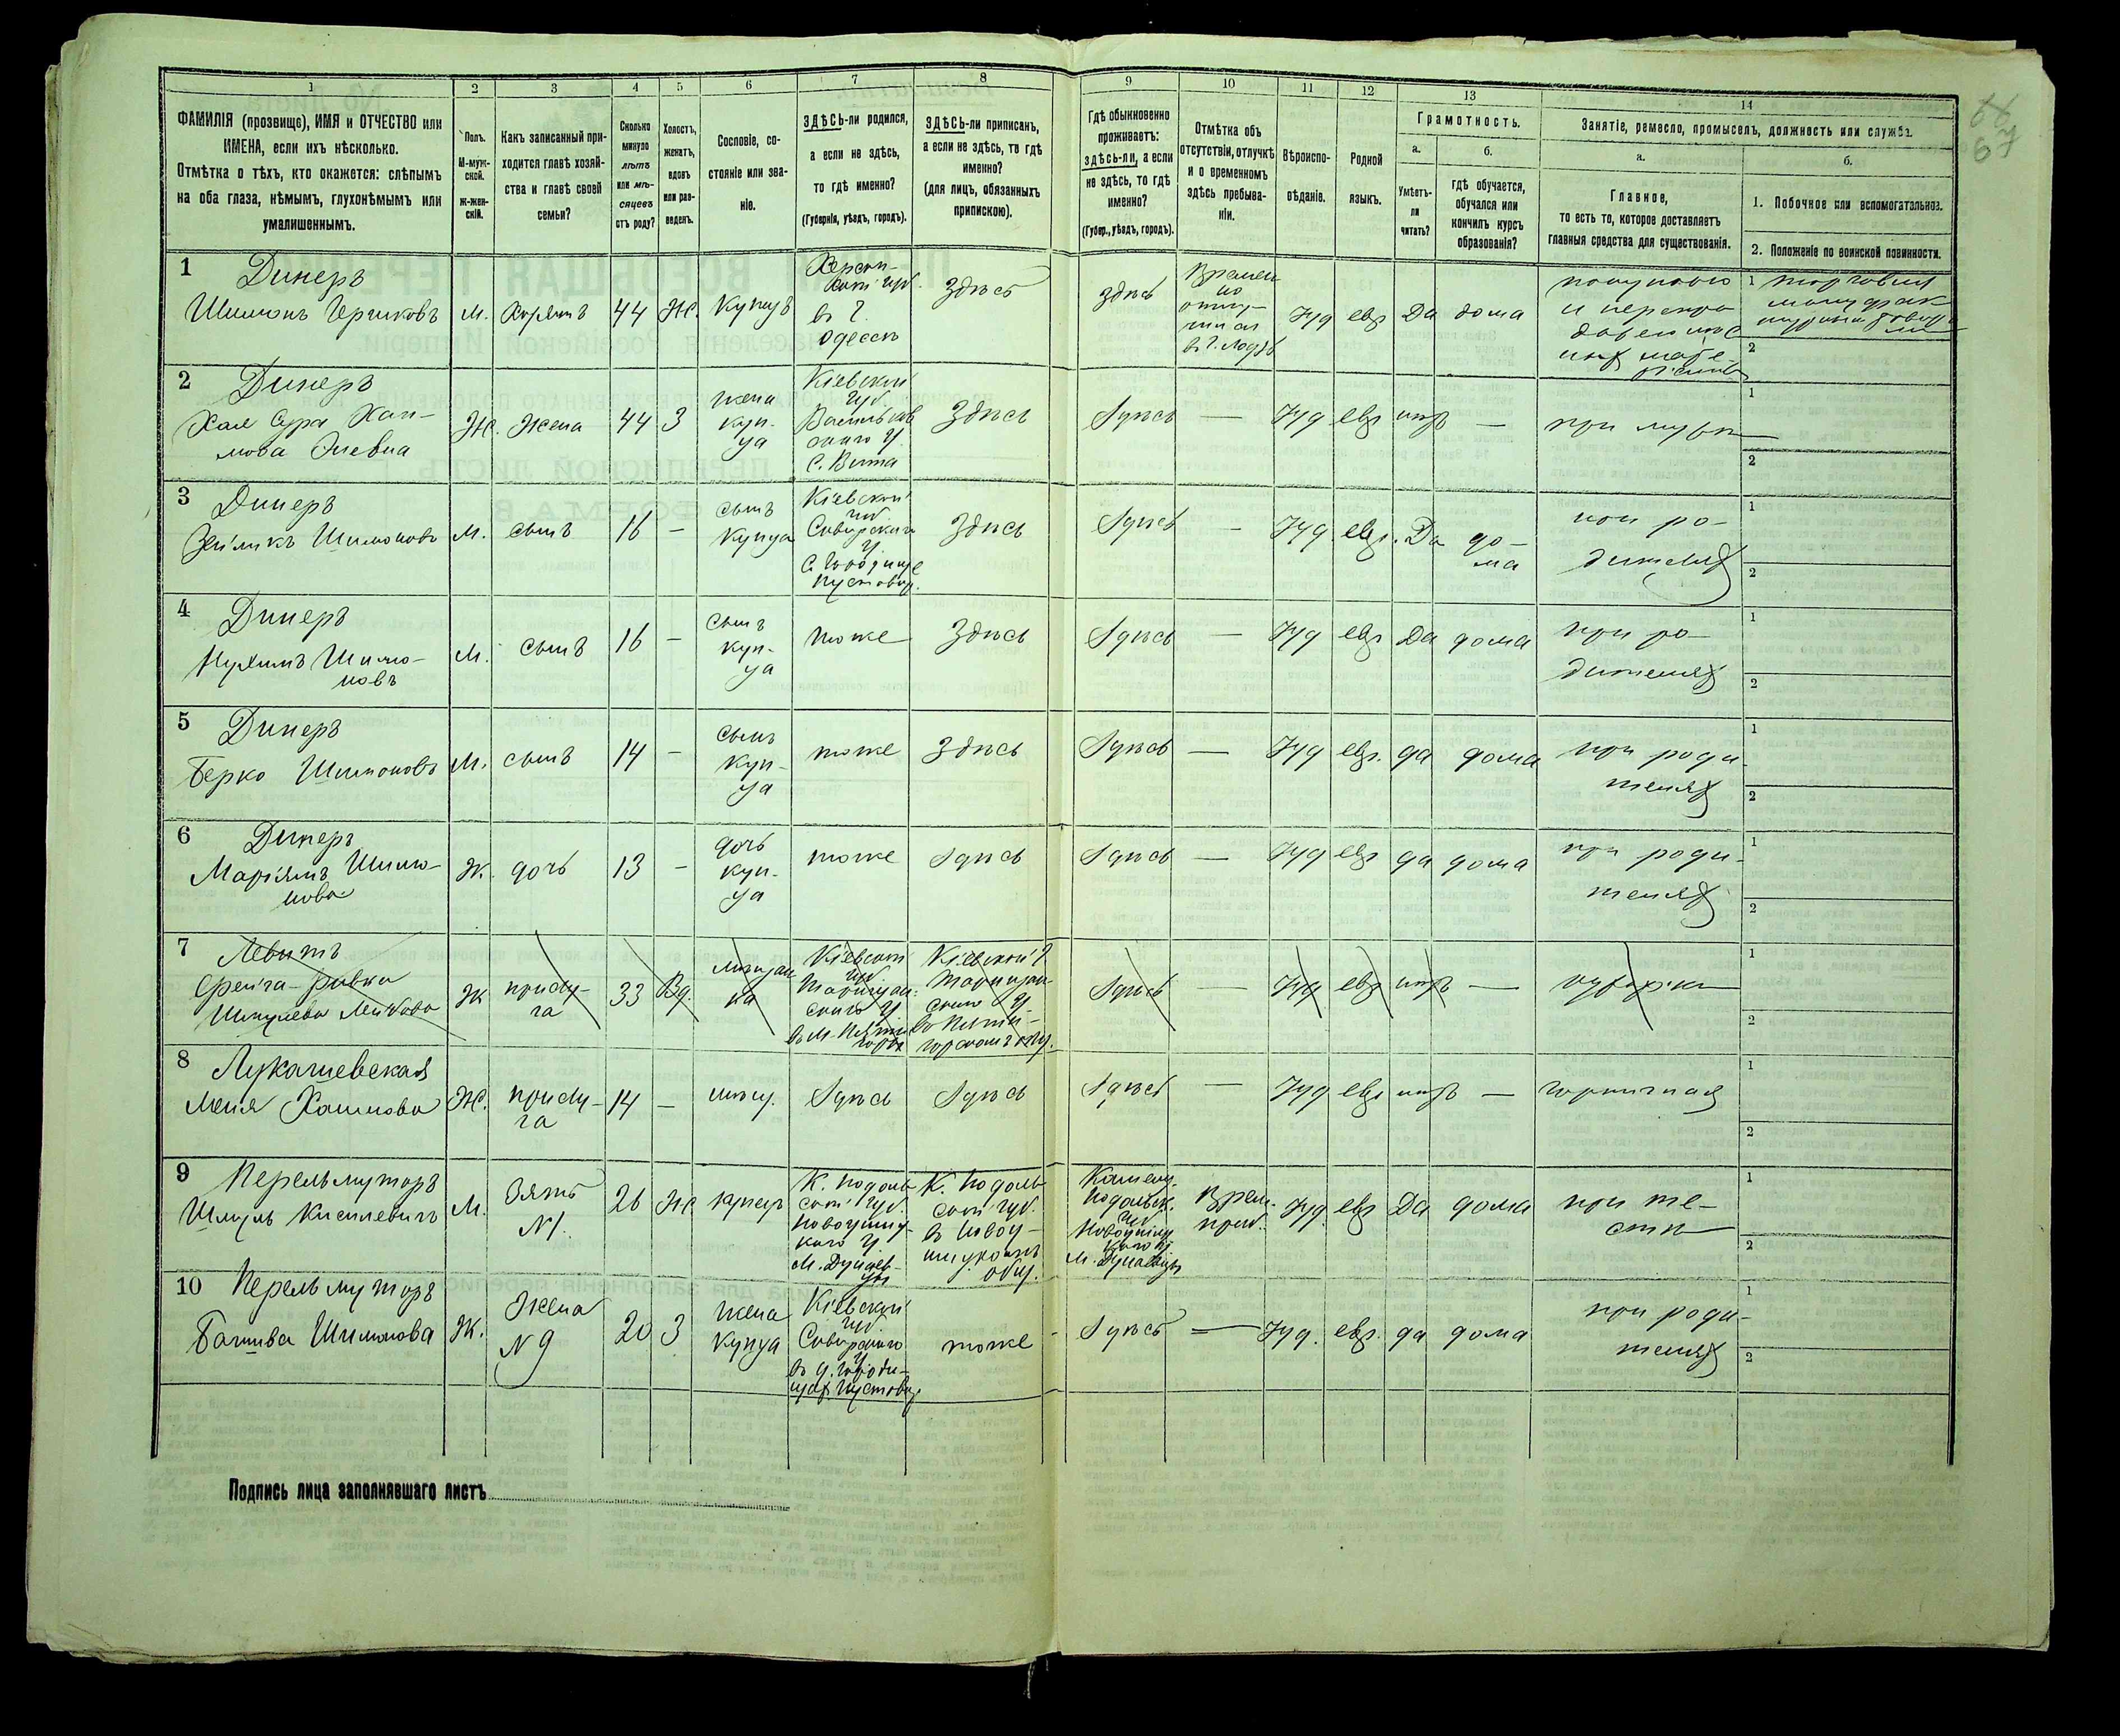 1 2 3 4 5 6 7 8 9 10 11 12 13 14
ФАМИЛІЯ (прозвище), ИМЯ и ОТЧЕСТВО или
ИМЕНА, если ихъ нѣсколько.
Отмѣтка о тѣхъ, кто окажется: слѣпымъ
на оба глаза, нѣмымъ, глухонѣмымъ или
умалишеннымъ.
Полъ.
М-муж-
ской.
ж-жен-
скій.
Какъ записанный при-
ходится главѣ хозяй-
ства и главѣ своей
семьи?
Сколько
минуло
лѣтъ
или мѣ-
сяцевъ
отъ роду?
Холостъ,
женатъ,
вдовъ
или раз-
веденъ.
Сословіе, со-
стояніе или зва-
ніе.
ЗДѢСЬ-ли родился,
а если не здѣсь,
то гдѣ именно?
(Губернія, уѣздъ, городъ).
ЗДѢСЬ-ли приписанъ,
а если не здѣсь, то гдѣ
именно?
(для лицъ, обязанныхъ
припискою).
Гдѣ обыкновенно
проживаетъ:
здѣсь-ли, а если
не здѣсь, то гдѣ
именно?
(Губер., уѣздъ, городъ).
Отмѣтка объ
отсутствіи, отлучкѣ
и о временномъ
здѣсь пребыва-
ніи.
Вѣроиспо-
вѣданіе.
Родной
языкъ.
Грамотность.
а.
Умѣетъ-
ли
читать?
б.
гдѣ обучается,
обучался или
кончилъ курсъ
образованія?
Занятіе, ремесло, промыселъ, должность или служба.
а.
Главное,
то есть то, которое доставляетъ
главныя средства для существованія.
б.
1. Побочное или вспомогательное.
2. Положеніе по воинской повинности.
67
1 Динеръ
Шимонъ Гершковъ
М.
Хозяинъ
44
Ж.
Купецъ
Херсон-
ской губ.
въ г.
Одессѣ
Здѣсь
Здѣсь
Времен
но
отлу-
чился
въ г. Лодзь
Іуд
евр
Да
дома
и перепро
1 торговля
2
2 Динеръ
Хая Сура Хаи-
мова
Ж.
Жена
44
З
жена
куп-
ца
Кіевской
губ
Васильков
скаго у.
С. Вита
Здѣсь
Здѣсь
—
Іуд
евр
нѣтъ
—
при мужѣ
1
2
3 Динеръ
Зейликъ Шимоновъ
М.
сынъ
16
—
сынъ
купца
Кіевской
губ
Сквирскаго
у.
С. Городище
Пустовар.
Здѣсь
Здѣсь
—
Іуд.
евр.
Да
до-
ма
при ро-
дителяхъ
1
2
4 Динеръ
Нухимъ Шимо-
новъ
М.
сынъ
16
—
сынъ
куп-
ца
тоже
Здѣсь
Здѣсь
—
Іуд
евр
Да
дома
при ро-
дителяхъ
1
2
5 Динеръ
Берко Шимоновъ
М.
сынъ
14
—
сынъ
куп-
ца
тоже
Здѣсь
Здѣсь
—
Іуд
евр.
да
дома
при роди-
теляхъ
1
2
6 Динеръ
Маріямъ Шимо-
нова
Ж.
дочь
13
—
дочь
куп-
ца
тоже
Здѣсь
Здѣсь
—
Іуд
евр
да
дома
при роди-
теляхъ
1
2
7 Левитъ
Фейга-Ривка
Ж
прислу-
га
33
Вд.
мѣщан
ка
Кіевской
губ
Таращан-
скаго у
въ м. Пяти
горы
Кіевской г
Таращан-
скаго у
въ Пяти-
горскомъ общ.
Здѣсь
—
Іуд
евр
нѣтъ
—
кухарка
1
2
8 Лукашевская
Меня Хаимова
Ж.
прислу-
га
14
—
мѣщ.
Здѣсь
Здѣсь
Здѣсь
—
Іуд
евр
нѣтъ
—
горничная
1
2
9 Перельмутеръ
Шмуль Кисилевичъ
М.
Зять
N1.
26
Ж
купецъ
К. Подоль
ской губ.
Новоушиц-
каго у
м. Дунаев-
цы
К. Подоль
ской губ.
въ Новоу-
шицкомъ
общ.
Каменец-
Подольск.
губ
Новоушиц
каго у.
м. Дунаевцы
Врем.
приб.
Іуд.
евр
Да
дома
при те-
стѣ
1
2
10 Перельмутеръ
Башива Шимонова
Ж.
Жена
N9
20
З
жена
купца
Кіевской
губ
Сквирскаго
у
въ д. Городи-
щах Пустовар.
тоже
Здѣсь
—
Іуд.
евр.
да
дома
при роди-
теляхъ
1
2
Подпись лица заполнявшаго листъ